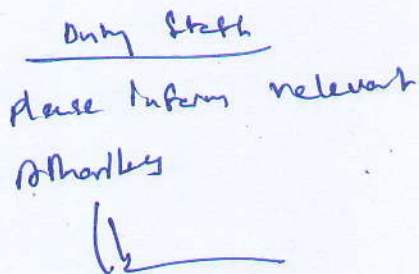 Duty Staff
Please inform relevant
Authorities